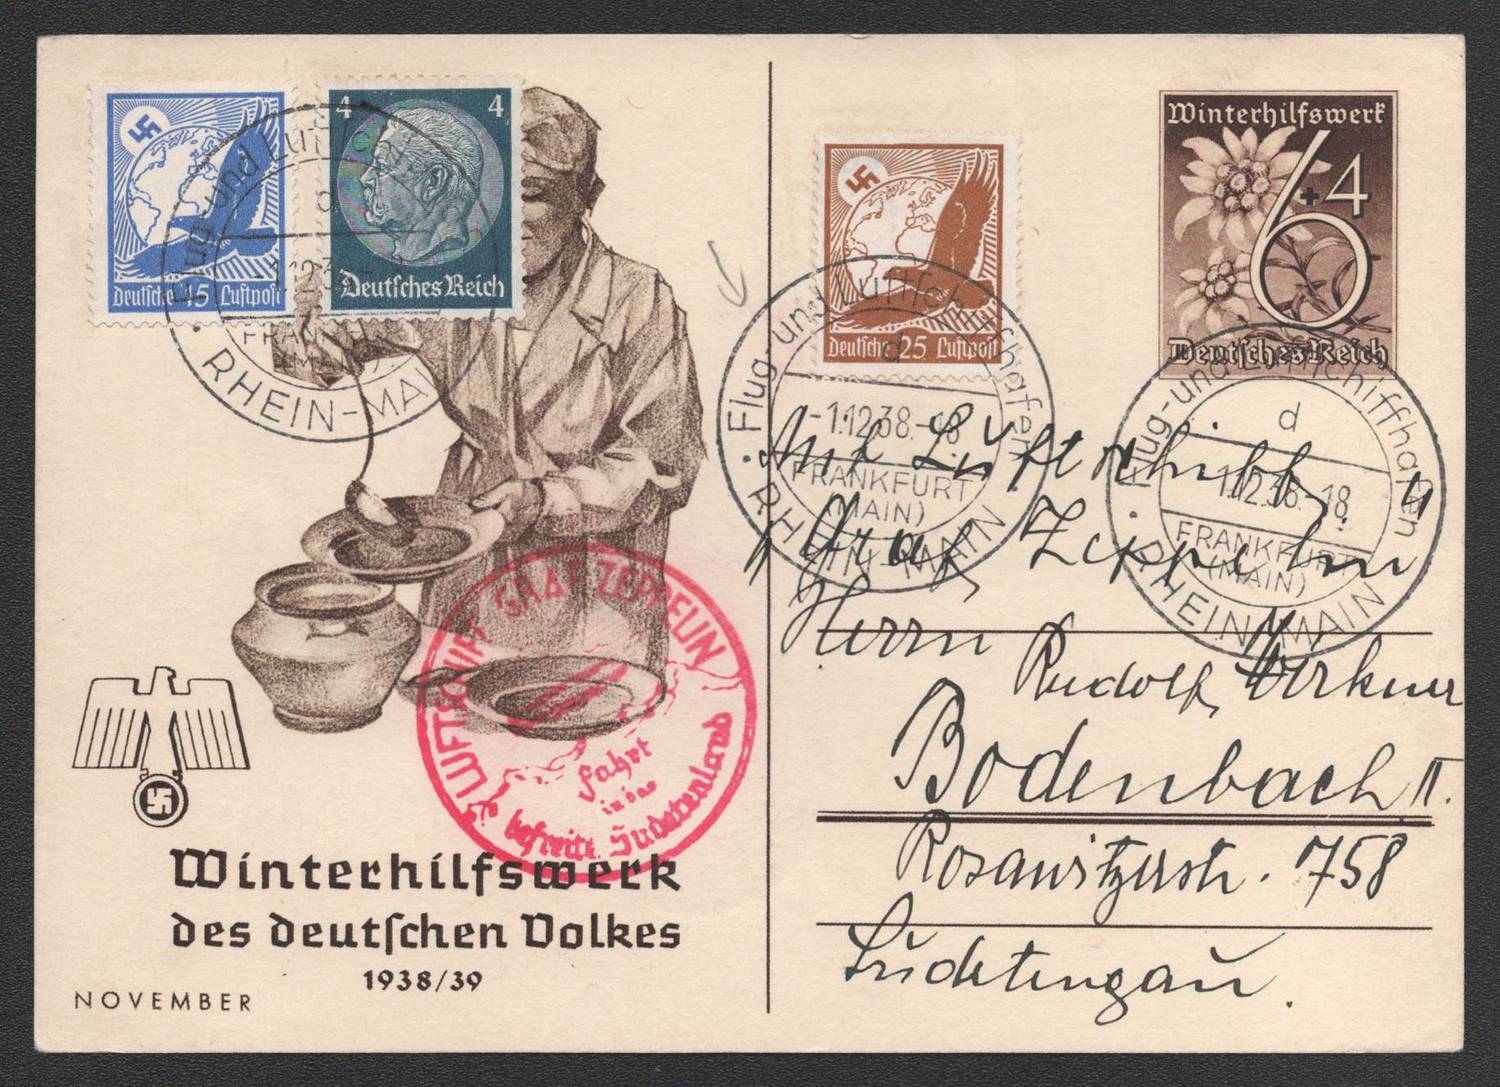 Deutsche 15 Luftpost
4 4
Deutsches Reich
Flug- und Luftsch
d
-1.12.3
FRANKF
(MAIN)
RHEIN-MAI
LUFTSCHIFF GRAF ZEPPELIN
Fahrt
in das
befreite Sudetenland
Winterhilfswerk
des deutschen Volkes
1938/39
NOVEMBER
Deutsche 25 Luftpost
Flug- und Luftschiffhafen
d
-1.12.38.-18
FRANKFURT
(MAIN)
RHEIN-MAIN
Winterhilfswerk
6+4
Deutsches Reich
Flug- und Luftschiffhafen
d
-1.12.38.-18
FRANKFURT
(MAIN)
RHEIN-MAIN
Mit Luftschiff
Graf Zeppelin
Herrn
Rudolf
Bodenbach II.
Rosawitzerstr. 758
Sudetengau.